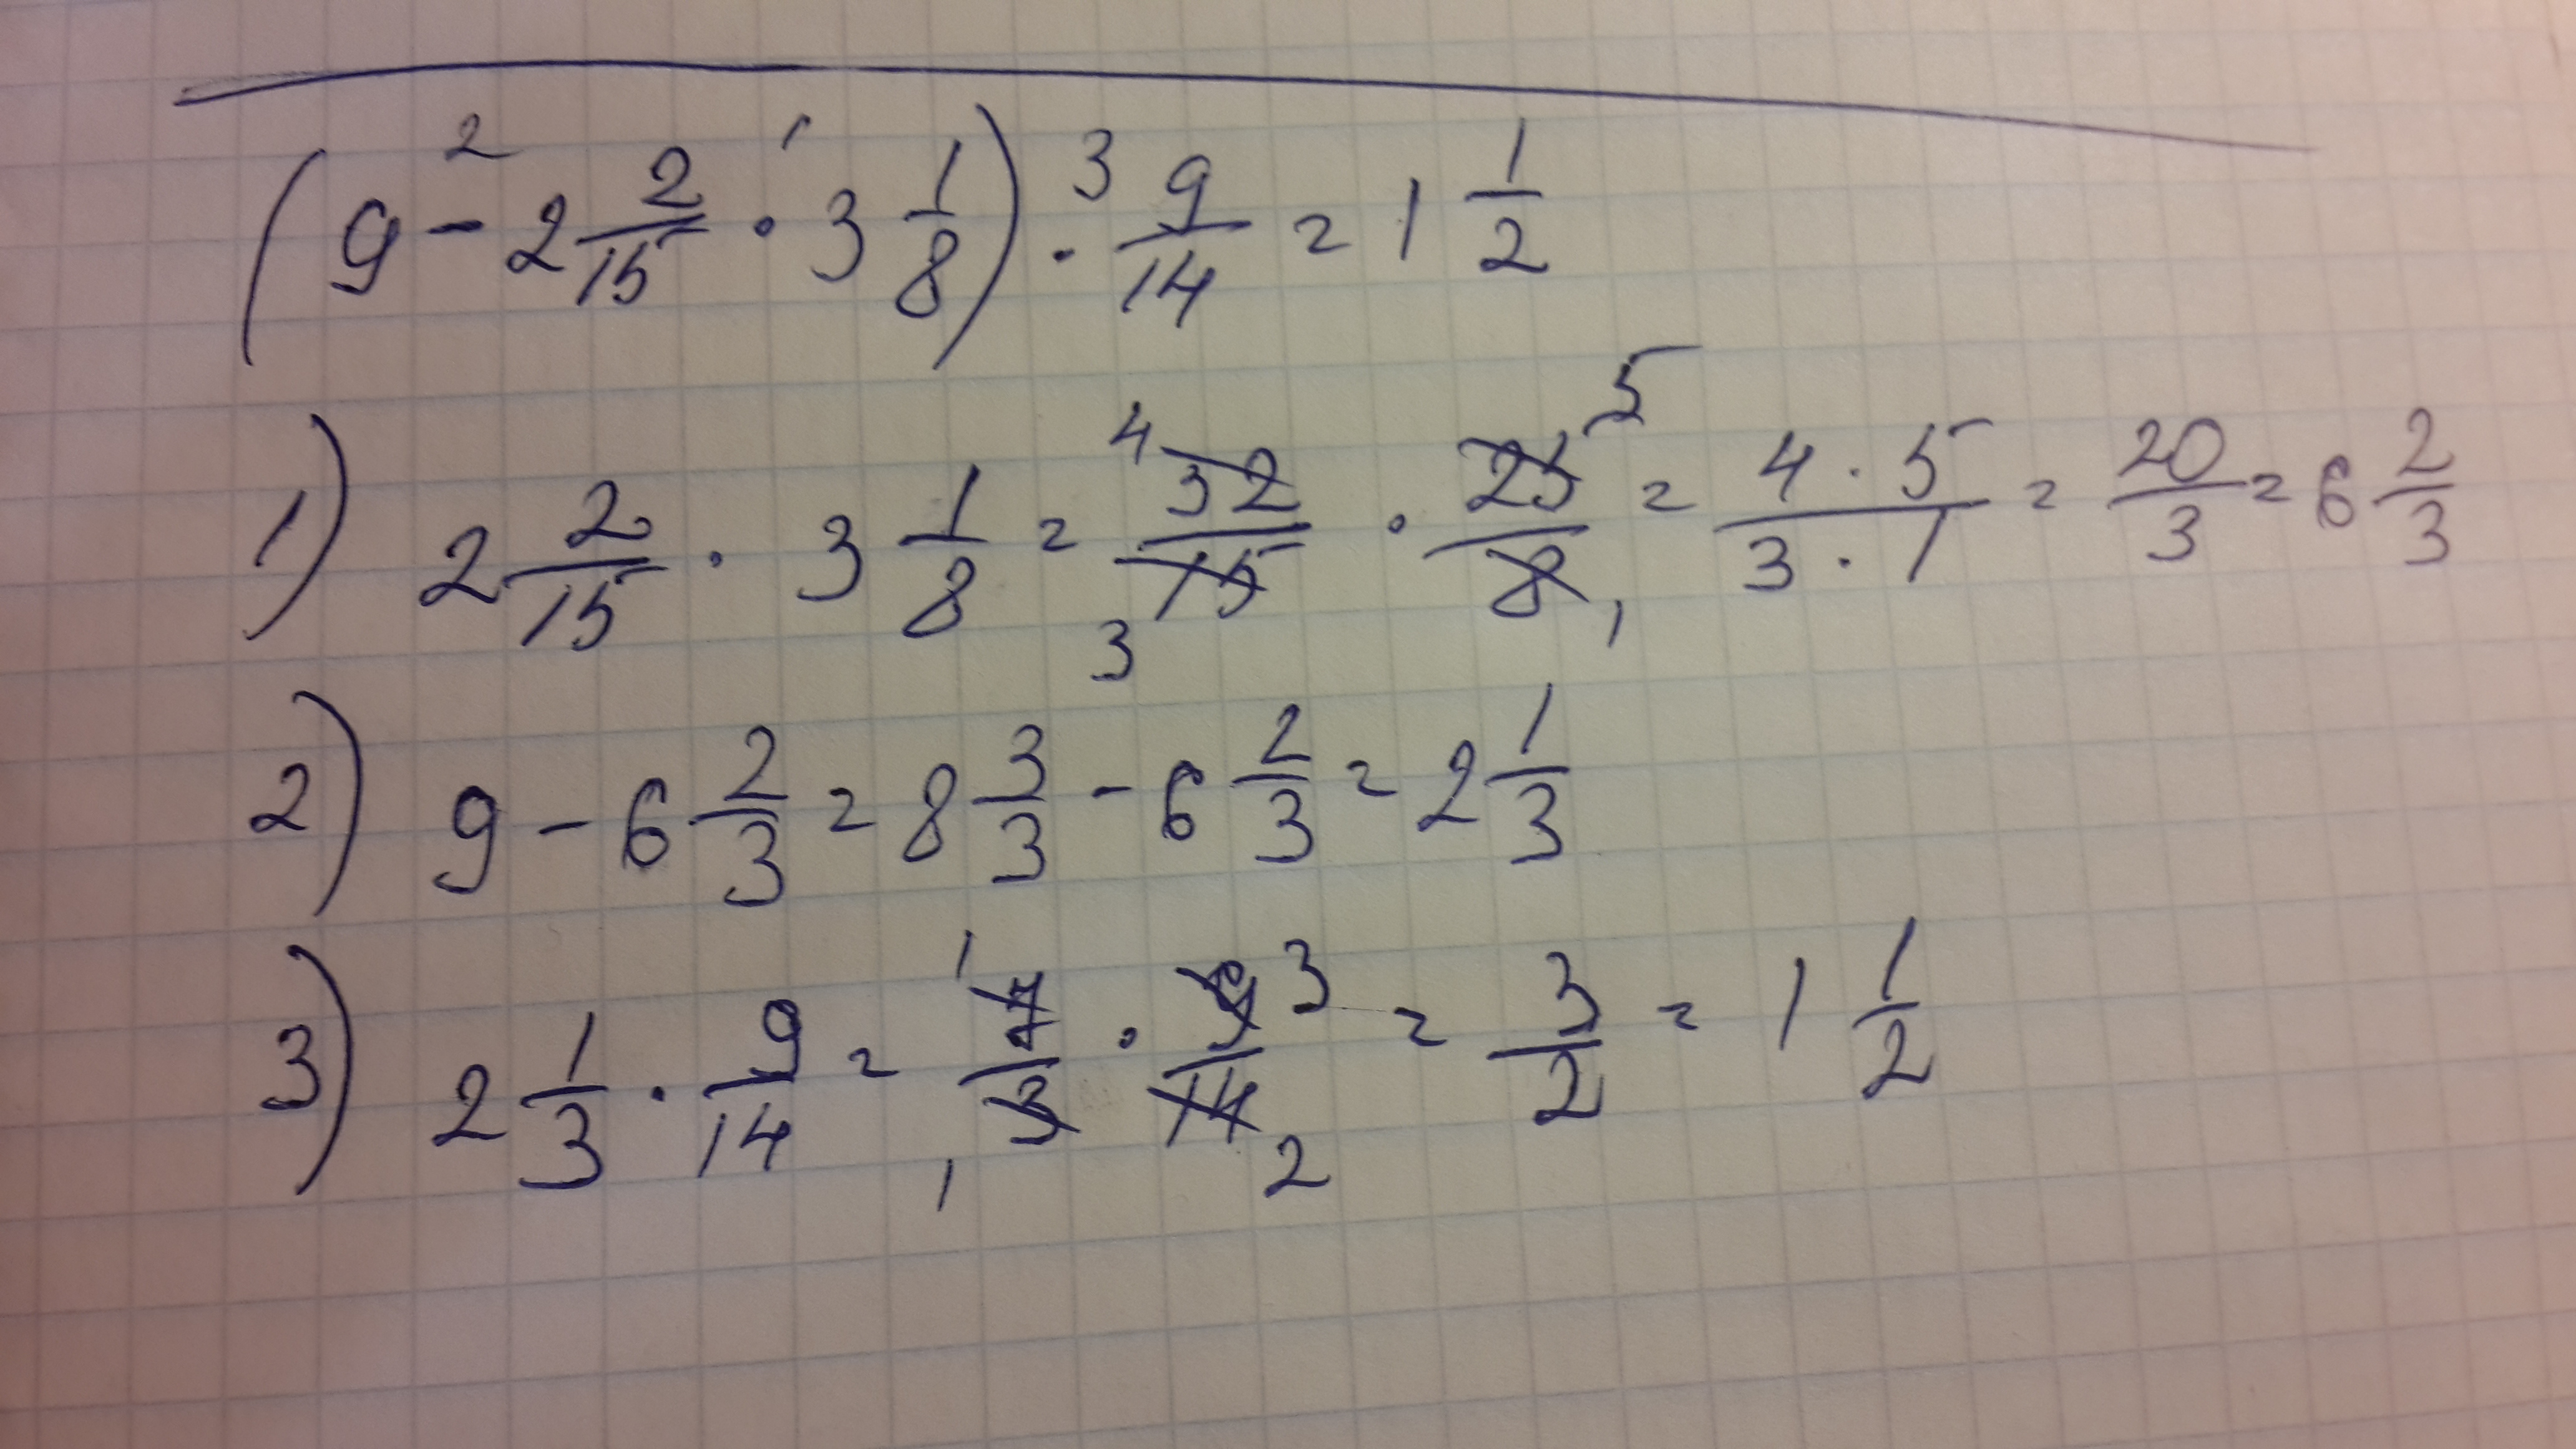 (9 -² 2 2/15 ·¹ 3 1/8) ·³ 9/14 = 1 1/2
1) 2 2/15 · 3 1/8 = ⁴32/15₃ · 25⁵/8₁ = 4 · 5/3 · 1 = 20/3 = 6 2/3
2) 9 - 6 2/3 = 8 3/3 - 6 2/3 = 2 1/3
3) 2 1/3 · 9/14 = ¹7/3₁ · 9³/14₂ = 3/2 = 1 1/2